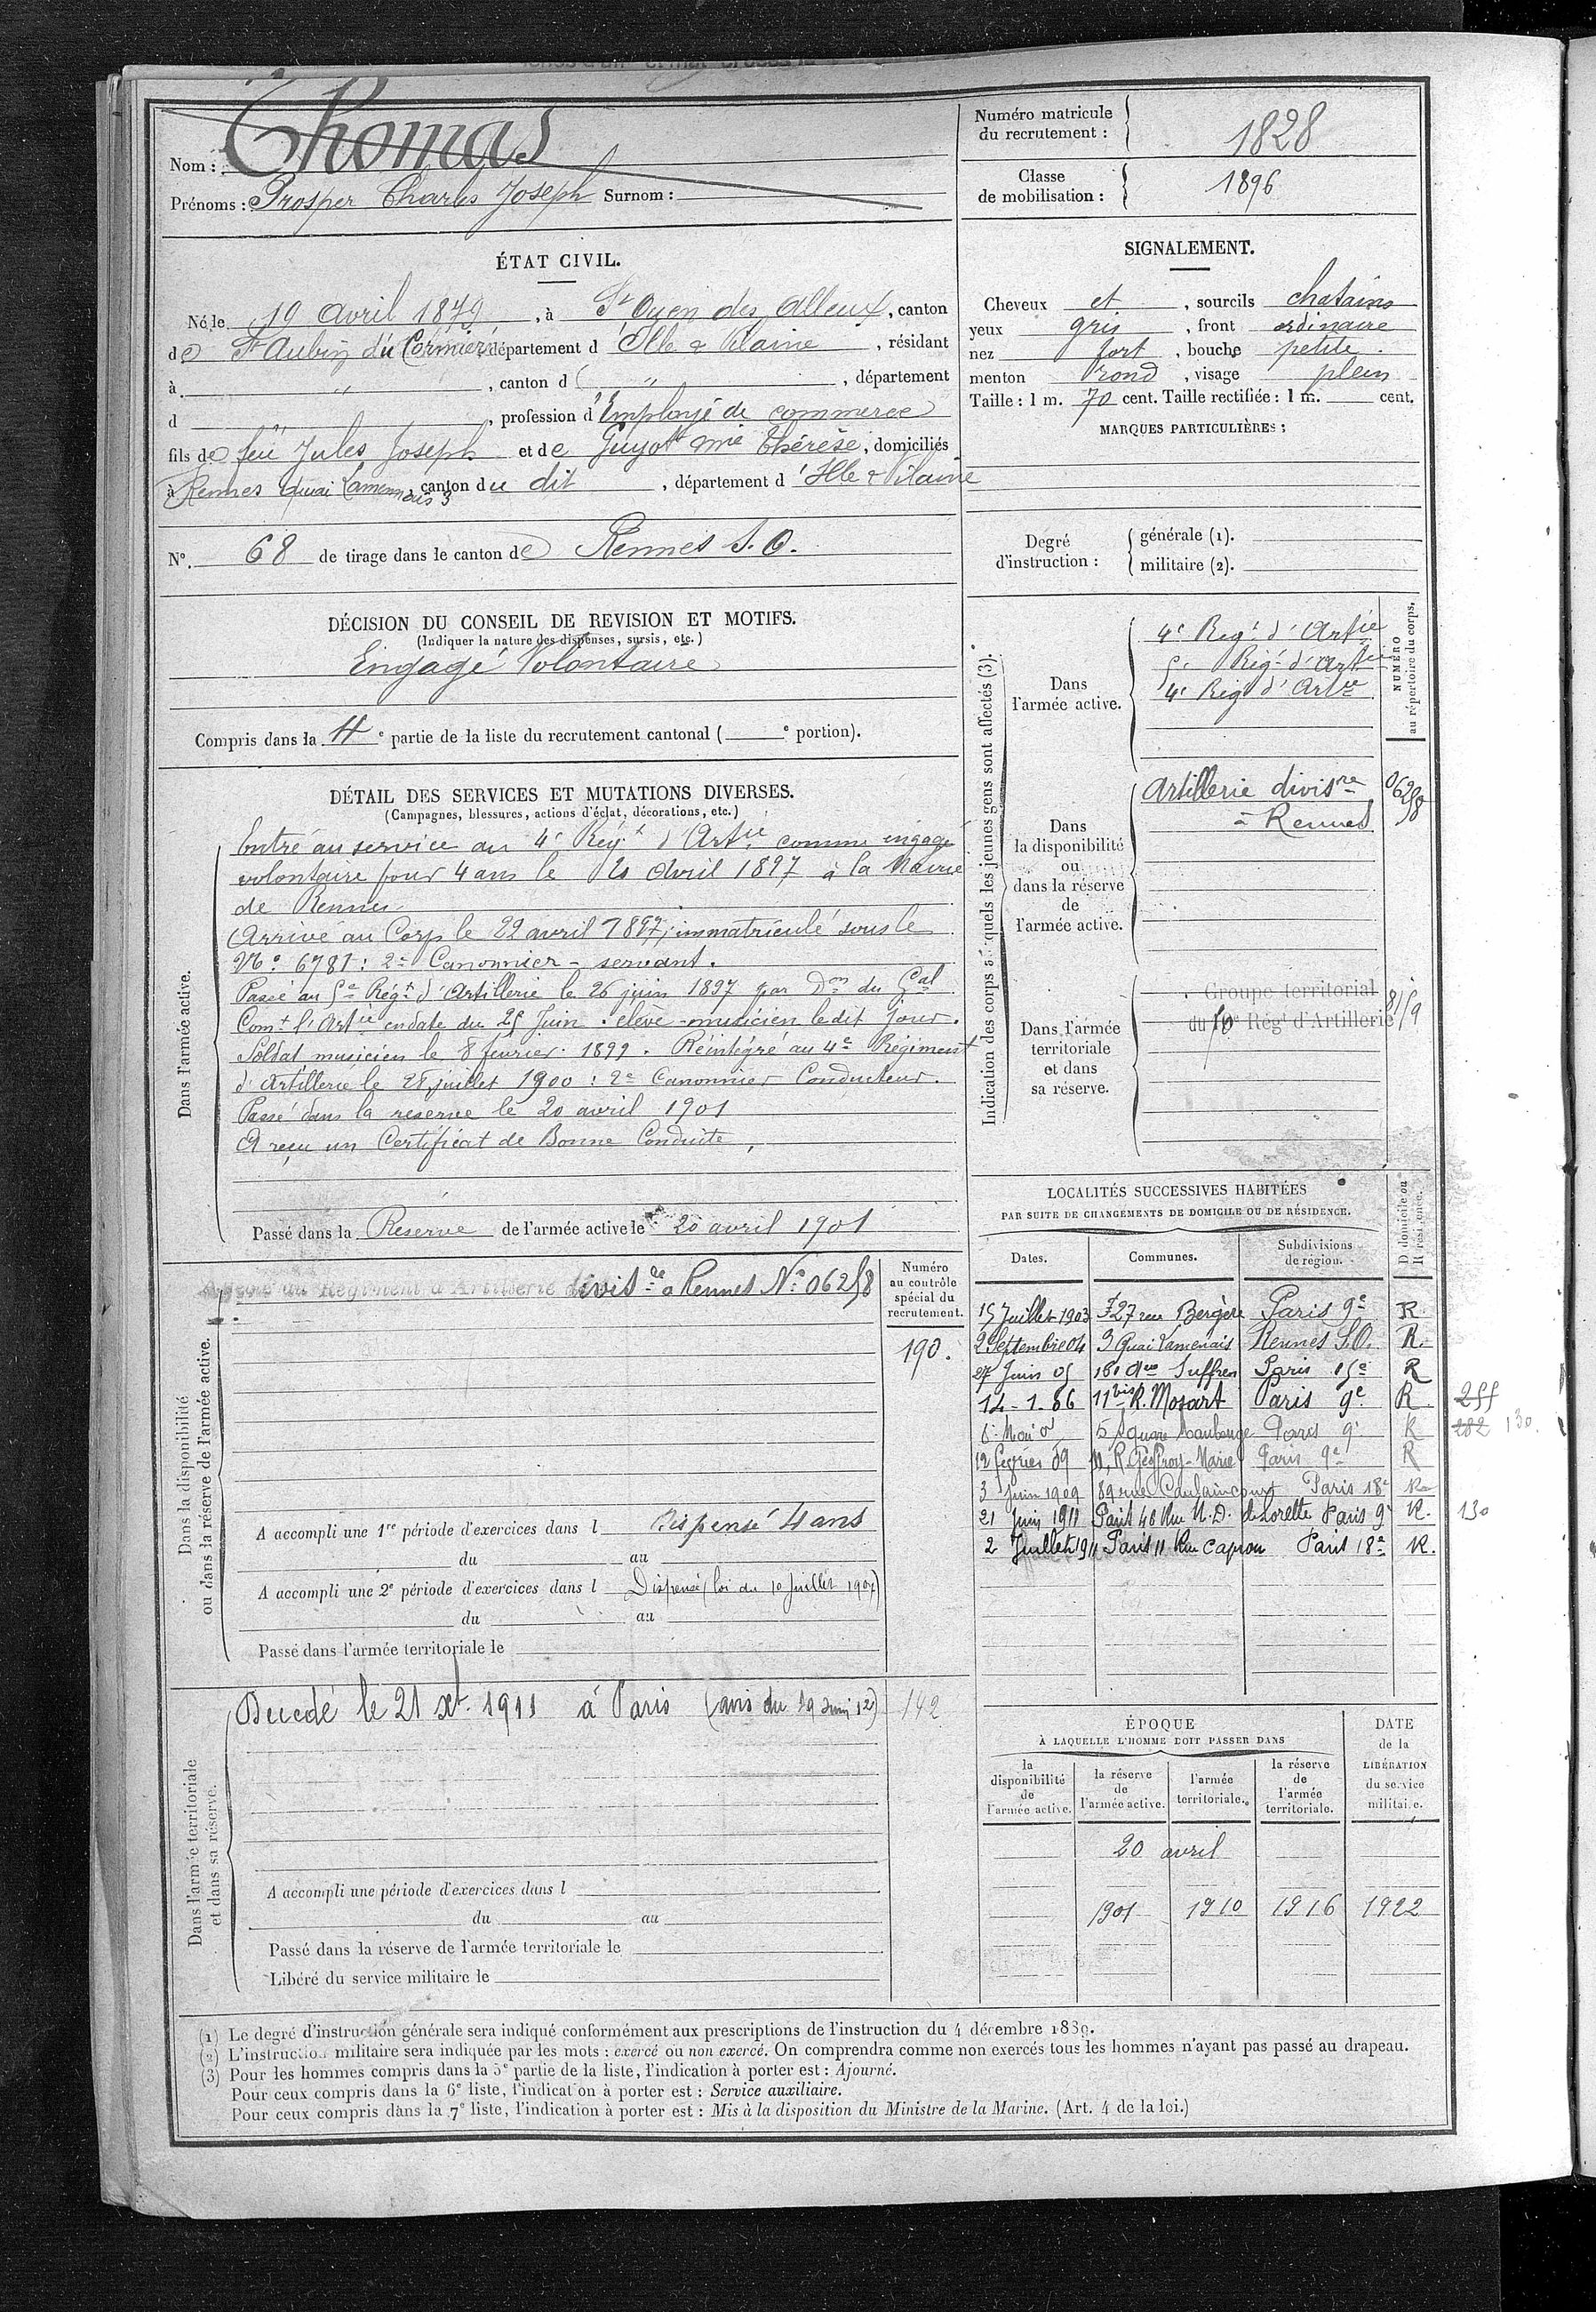 Nom : Thomas
Prénoms : Prosper Charles Joseph Surnom :
Numéro matricule du recrutement : 1828
Classe de mobilisation : 1896
ÉTAT CIVIL.
Né le 19 avril 1879, à St Ouen des Alleux, canton
de St Aubin du Cormier, département d'Ille & Vilaine, résidant
à " , canton d " , département
d " , profession d'Employé de commerce
fils de feu Jules Joseph et de Guyot Mie Thérèse, domiciliés
à Rennes quai Lamennais 3, canton du dit, département d'Ille & Vilaine
No. 68 de tirage dans le canton de Rennes S.O.
DÉCISION DU CONSEIL DE REVISION ET MOTIFS.
(Indiquer la nature des dispenses, sursis, etc.)
Engagé Volontaire
Compris dans la 4e partie de la liste du recrutement cantonal ( e portion).
DÉTAIL DES SERVICES ET MUTATIONS DIVERSES.
(Campagnes, blessures, actions d'éclat, décorations, etc.)
Dans l'armée active.
Entré au service au 4e Régt d'Artie comme engagé
volontaire pour 4 ans le 20 Avril 1897 à la Mairie
de Rennes.
Arrivé au Corp le 22 avril 1897, immatriculé sous le
No. 6781 : 2e Canonnier - servant.
Passé au 5e Régt d'Artillerie le 26 juin 1897 par Don du Gal
Comt l'Artie en date du 25 Juin. élève-musicien le dit jour.
Soldat musicien le 8 février 1899. Réintégré au 4e Régiment
d'Artillerie le 28 juillet 1900 : 2e Canonnier Conducteur.
Passé dans la réserve le 20 avril 1901
A reçu un Certificat de Bonne Conduite,
Passé dans la Réserve de l'armée active le 20 avril 1901
Dans la disponibilité ou dans la réserve de l'armée active.
Régiment d'Artillerie divisre à Rennes No 06258
Numéro au contrôle spécial du recrutement.
190.
A accompli une 1re période d'exercices dans l Dispensé 4 ans
du au
A accompli une 2e période d'exercices dans l Dispensé (loi du 10 Juillet 1907)
du au
Passé dans l'armée territoriale le
Dans l'armée territoriale et dans sa réserve.
Décédé le 21 xbre 1911 à Paris (avis du 19 Juin 12) 142
A accompli une période d'exercices dans l
du au
Passé dans la réserve de l'armée territoriale le
Libéré du service militaire le
SIGNALEMENT.
Cheveux et, sourcils chatains
yeux gris, front ordinaire
nez fort, bouche petite.
menton rond, visage plein
Taille : 1 m. 70 cent. Taille rectifiée : 1 m. cent.
MARQUES PARTICULIÈRES :
Degré d'instruction :
générale (1).
militaire (2).
Indication des corps auxquels les jeunes gens sont affectés (3).
NUMÉRO au répertoire du corps.
Dans l'armée active.
4e Regt d'Artie
5e Régt d'Artie
4e Régt d'Artie
Dans la disponibilité ou dans la réserve de l'armée active.
Artillerie divisre 06258
à Rennes
Dans l'armée territoriale et dans sa réserve.
Groupe territorial
du 10e Régt d'Artillerie 8159
LOCALITÉS SUCCESSIVES HABITÉES
PAR SUITE DE CHANGEMENTS DE DOMICILE OU DE RÉSIDENCE.
Dates. Communes. Subdivisions de région. D domicile ou R résidence.
15 Juillet 1903 27 rue Bergère Paris 9e R
2 Septembre 04 3 Quai Lamenais Rennes S.O. R.
27 Juin 05 161 Aue Suffren Paris 15e R
14-1-06 11 bis R. Mozart Paris 9e R 255
Mai 5 Square Maubeuge Paris 9e R 282 130.
12 février 09 11, R. Geoffroy-Marie Paris 9e R
3 Juin 1909 89 rue Caulaincourt Paris 18e R
21 Juin 1911 Paris 46 Rue N.D. de Lorette Paris 9e R. 130
2 Juillet 1911 Paris 11 Rue Capron Paris 18e R.
ÉPOQUE
À LAQUELLE L'HOMME DOIT PASSER DANS
DATE de la LIBÉRATION du service militaire.
la disponibilité de l'armée active.
la réserve de l'armée active.
l'armée territoriale.
la réserve de l'armée territoriale.
20 avril
1901 1910 1916 1922
(1) Le degré d'instruction générale sera indiqué conformément aux prescriptions de l'instruction du 4 décembre 1889.
(2) L'instruction militaire sera indiquée par les mots : exercé ou non exercé. On comprendra comme non exercés tous les hommes n'ayant pas passé au drapeau.
(3) Pour les hommes compris dans la 5e partie de la liste, l'indication à porter est : Ajourné.
Pour ceux compris dans la 6e liste, l'indication à porter est : Service auxiliaire.
Pour ceux compris dans la 7e liste, l'indication à porter est : Mis à la disposition du Ministre de la Marine. (Art. 4 de la loi.)